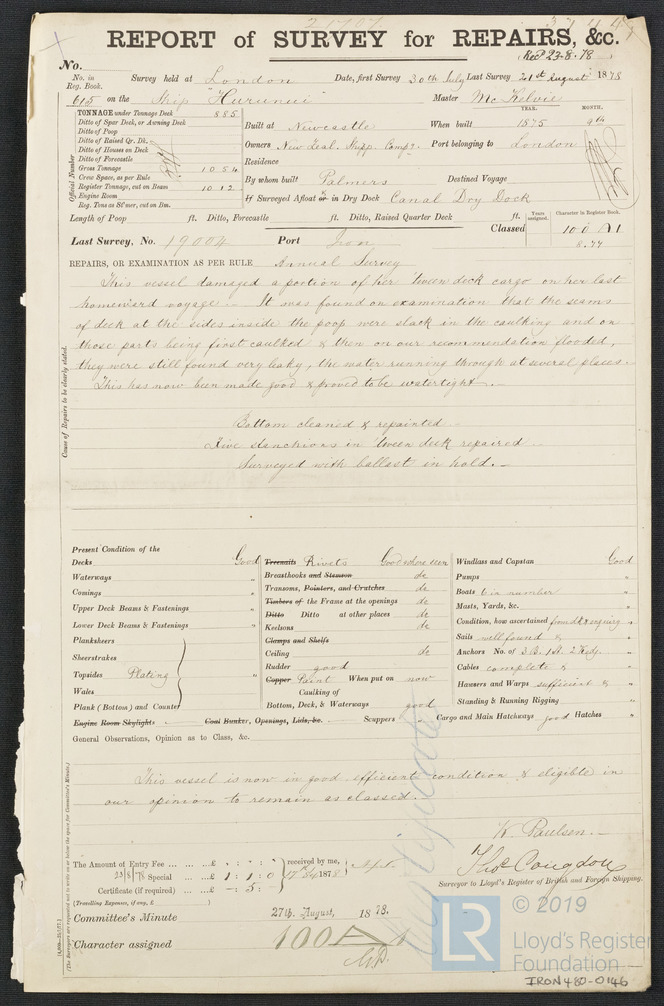 REPORT of SURVEY for REPAIRS, &c.
Rec^d 23-8-78
No.
No. in Reg. Book. Survey held at London Date, first Survey 30th July Last Survey 21st August 1878
615 on the Ship "Hurunui" Master McKelvie
TONNAGE under Tonnage Deck 885
Ditto of Spar Deck, or Awning Deck
Ditto of Poop
Ditto of Raised Qr. Dk.
Ditto of Houses on Deck
Ditto of Forecastle
Gross Tonnage 1054
Crew Space, as per Rule
Register Tonnage, cut on Beam 1012
Engine Room
Reg. Tons as St'mer, cut on Bm.
Official Number
Built at Newcastle When built YEAR. 1875 MONTH. 9th
Owners New Zeal. Shipp. Compy. Port belonging to London
Residence
By whom built Palmers Destined Voyage
If Surveyed Afloat or in Dry Dock Canal Dry Dock
Length of Poop ft. Ditto, Forecastle ft. Ditto, Raised Quarter Deck ft.
Years assigned. Character in Register Book.
Classed 100 A 1
8.77
Last Survey, No. 19004 Port Iron
REPAIRS, OR EXAMINATION AS PER RULE Annual Survey
This vessel damaged a portion of her 'tween deck cargo on her last
homeward voyage - It was found on examination that the seams
of deck at the sides inside the poop were slack in the caulking and on
those parts being first caulked & then on our recommendation flooded,
they were still found very leaky, the water running through at several places.
This has now been made good & proved to be watertight.
Bottom cleaned & repainted
Five stanchions in 'tween deck repaired
Surveyed with ballast in hold.
Cause of Repairs to be clearly stated.
Present Condition of the
Decks Good
Waterways "
Comings "
Upper Deck Beams & Fastenings "
Lower Deck Beams & Fastenings "
Planksheers
Sheerstrakes
Topsides Plating "
Wales
Plank (Bottom) and Counter
Engine Room Skylights Coal Bunker, Openings, Lids, &c. Scuppers " Cargo and Main Hatchways good Hatches "
Treenails Rivets Good where seen
Breasthooks and Stemson do
Transoms, Pointers, and Crutches do
Timbers of the Frame at the openings do
Ditto Ditto at other places do
Keelsons do
Clamps and Shelfs
Ceiling do
Rudder good
Copper Paint When put on now
Caulking of
Bottom, Deck, & Waterways good
Windlass and Capstan Good
Pumps "
Boats 6 in number "
Masts, Yards, &c. "
Condition, how ascertained from dk & enquiry
Sails well found &
Anchors No. of 3 B. 1 St. 2 Kdg. "
Cables complete & "
Hawsers and Warps sufficient & "
Standing & Running Rigging "
General Observations, Opinion as to Class, &c.
This vessel is now in good efficient condition & eligible in
our opinion to remain as classed.
W. Paulsen.
Thos Congdon
Surveyor to Lloyd's Register of British and Foreign Shipping.
The Amount of Entry Fee £ " : " : " received by me,
23/8/78 Special £ 1 : 1 : 0
Certificate (if required) £ - : 5 : -
(Travelling Expenses, if any, £ )
Committee's Minute 27th August, 1878.
Character assigned 100 A 1
© 2019
LR
Lloyd's Register
Foundation
IRON 480-0146